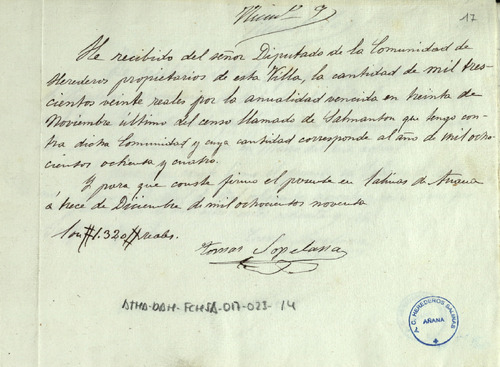 Núm.º 7
17
He recibido del señor Diputado de la Comunidad de
Herederos propietarios de esta Villa, la cantidad de mil tres-
cientos veinte reales por la anualidad vencida en treinta de
Noviembre último del censo llamado de Salmanton que tengo con-
tra dicha Comunidad y cuya cantidad corresponde al año de mil ocho-
cientos ochenta y cuatro.
Y para que conste firmo el presente en Salinas de Añana
á trece de Diciembre de mil ochocientos noventa
Son #1.320# reales.
Tomas Sopelana
ATHA-DAH-FCHSA-017-023-14
C. HEREDEROS SALINAS
AÑANA